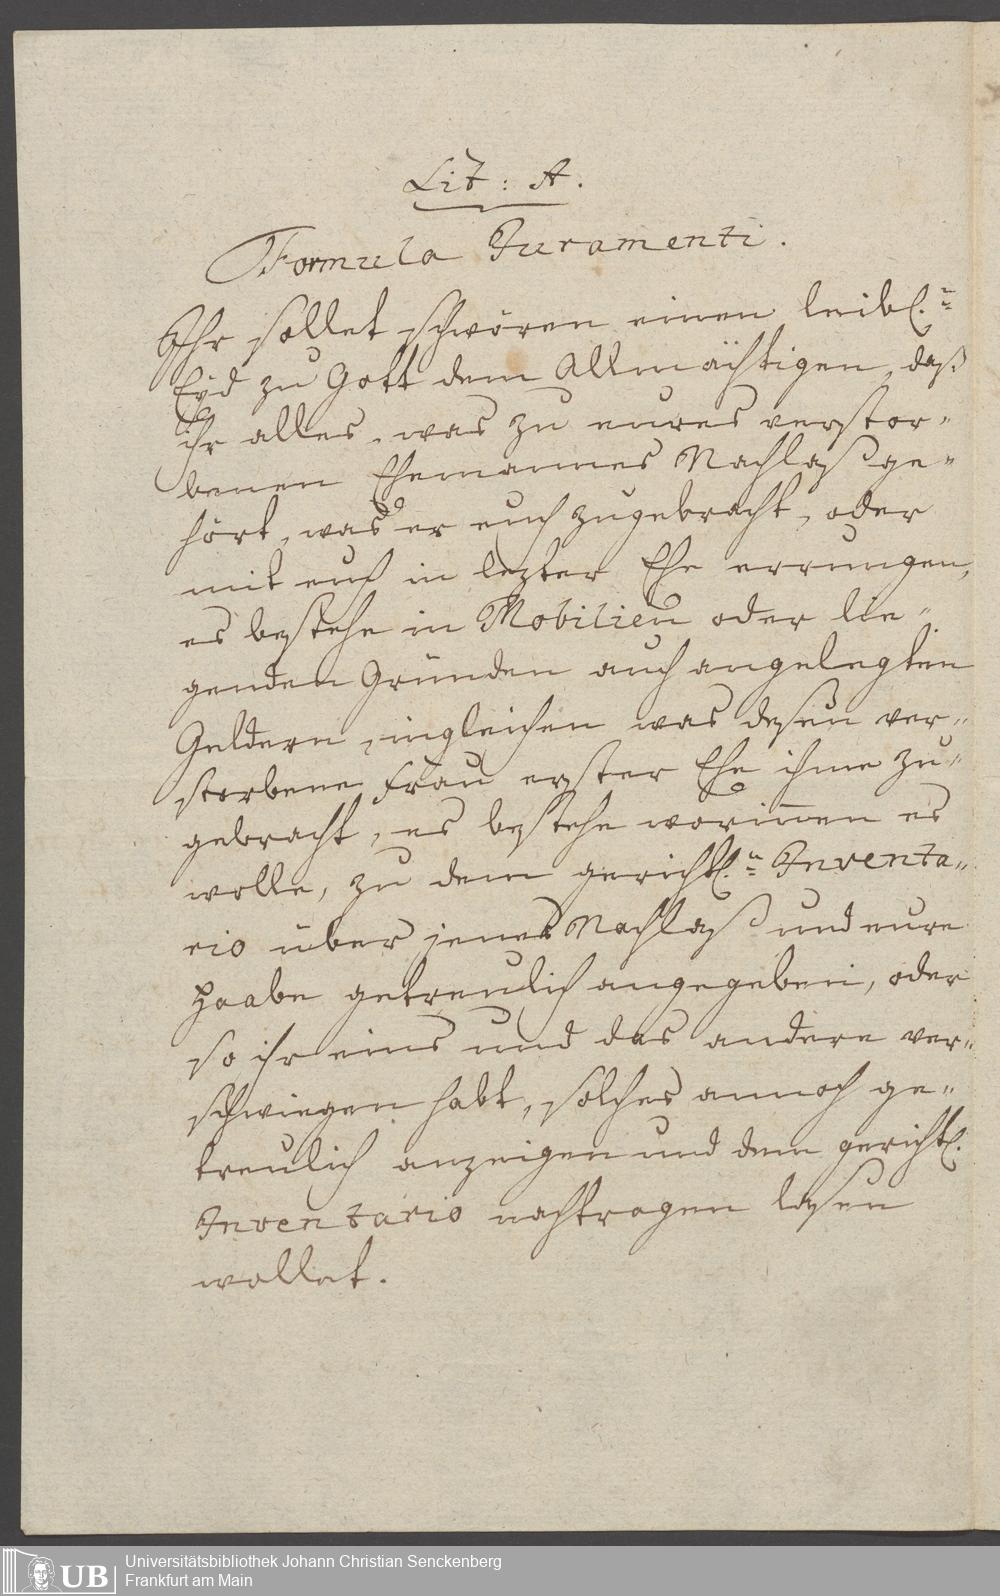 Lit: A.
Formula Juramenti.
Ihr sollet schwören einen leibl.n
Eyd zu Gott dem Allmächtigen, daß
ihr alles, was zu eures verstor-
benen Ehemannes Nachlaß ge-
hört, was er euch zugebracht, oder
mit euch in lezter Ehe errungen,
es bestehe in Mobilien oder lie-
genden Gründen auch angelegten
Geldern, ingleichen was deßen ver-
storbene Frau erster Ehe ihme zu-
gebracht, es bestehe worinnen es
wolle, zu dem gerichtl.n Inventa-
rio über jenes Nachlaß und eure
Haabe getreulich angegeben, oder
so ihr eins und das andere ver-
schwiegen habt, solches annoch ge-
treulich anzeigen und dem gerichtl.
Inventario nachtragen laßen
wollet.
UB
Universitätsbibliothek Johann Christian Senckenberg
Frankfurt am Main